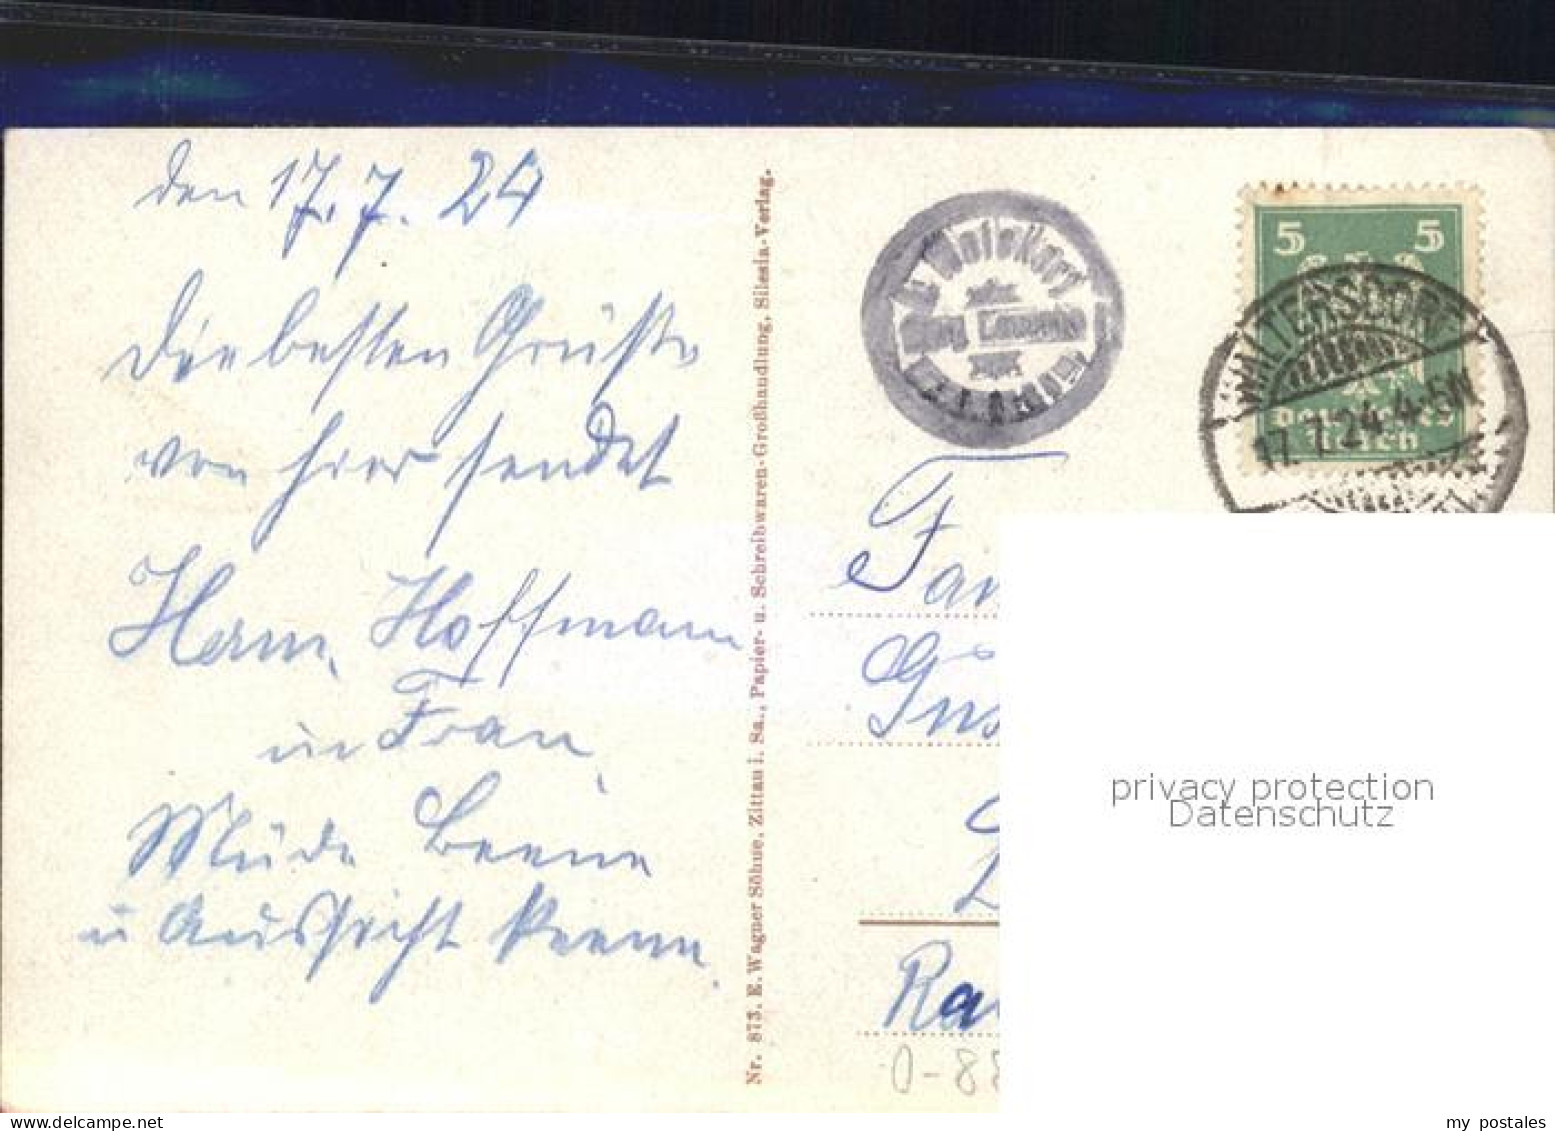 den 17.7.24
Die besten Grüße
von hier sendet
Herm. Hoffmann
u Frau
Müde Beene
u Aussicht Keene
Nr. 873. E. Wagner Söhne, Zittau i. Sa., Papier- u. Schreibwaren-Großhandlung, Silesia-Verlag.
5 5
Deutsches
Reich
WALTERSDORF
17.7.24. 4-5N
Fam
Gus
Ra
0-88
privacy protection
Datenschutz
my postales